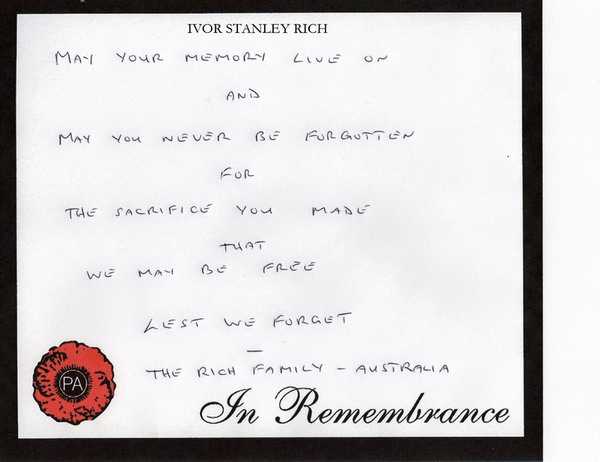 IVOR STANLEY RICH
MAY YOUR MEMORY LIVE ON
AND
MAY YOU NEVER BE FORGOTTEN
FOR
THE SACRIFICE YOU MADE
THAT
WE MAY BE FREE
LEST WE FORGET
—
THE RICH FAMILY – AUSTRALIA
PA
In Remembrance